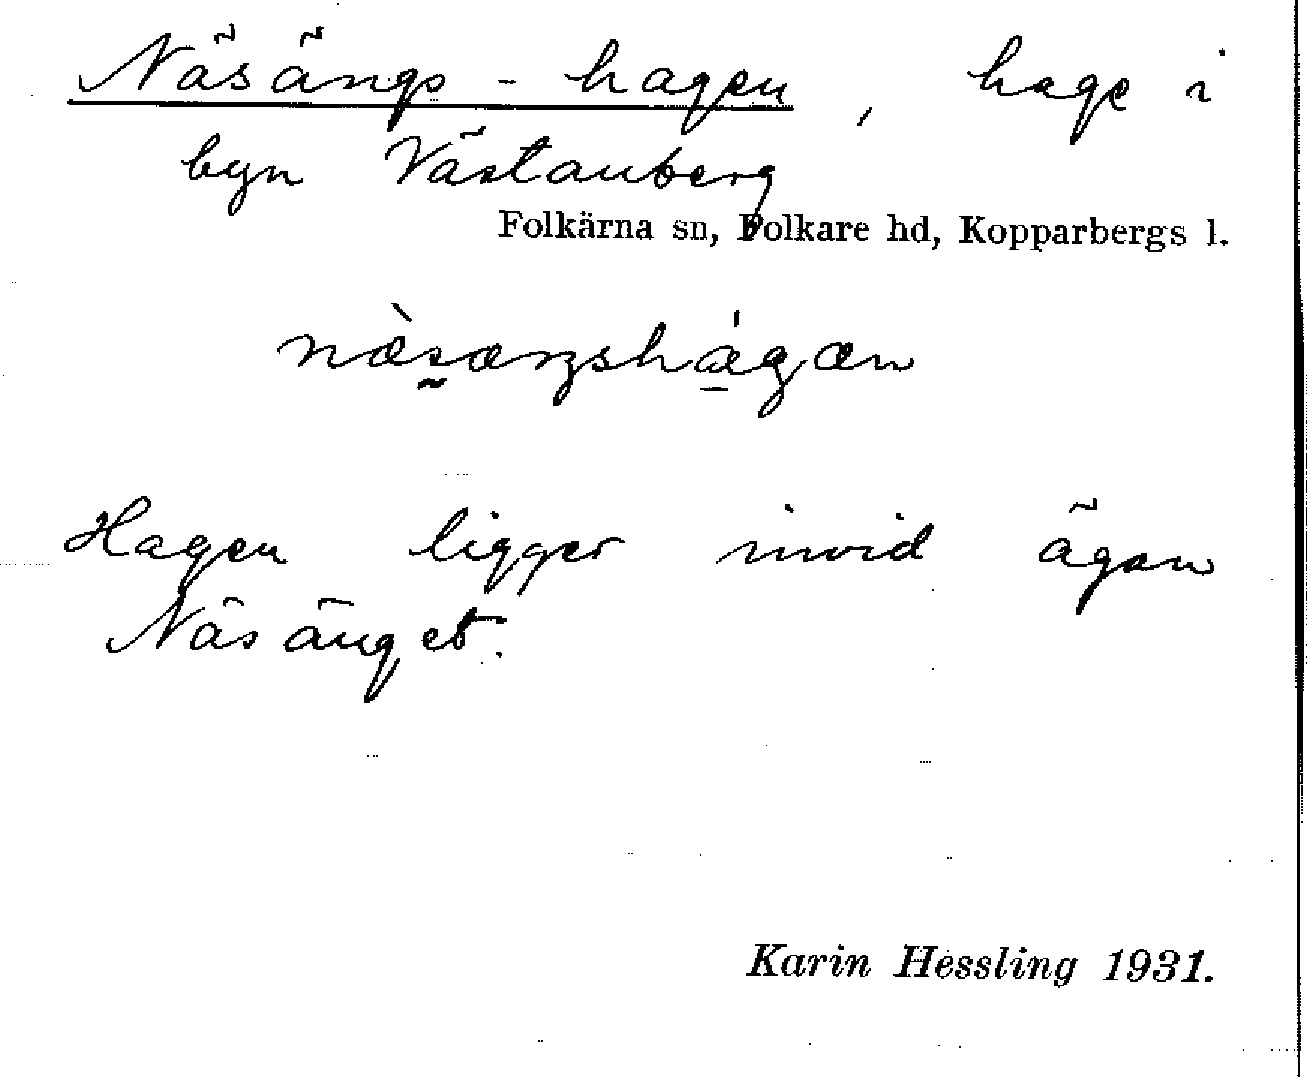 Näsängs-hagen, hage i
byn Västanberg
Folkärna sn, Folkare hd, Kopparbergs l.
næ̀sæŋshágæn
Hagen ligger invid ägan
Näsänget.
Karin Hessling 1931.